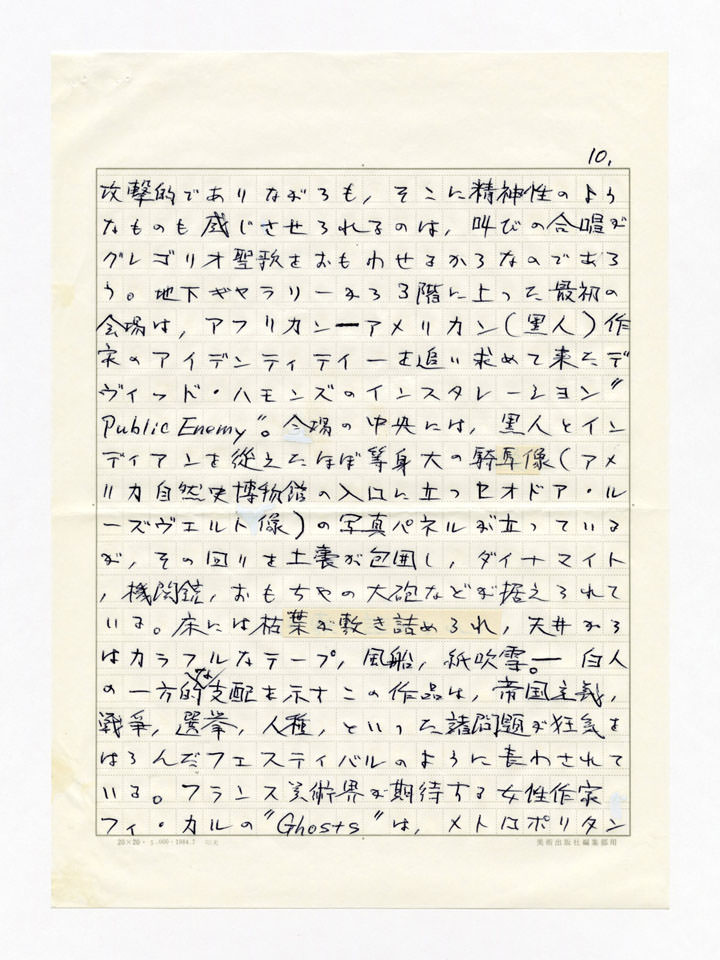 10.
攻撃的でありながらも，そこに精神性のよう
なものも感じさせられるのは，叫びの合唱が
グレゴリオ聖歌をおもわせるからなのであろ
う。地下ギャラリーから3階に上った最初の
会場は，アフリカン―アメリカン（黒人）作
家のアイデンティティーを追い求めて来たデ
ヴィッド・ハモンズのインスタレーション“
Public Enemy”。会場の中央には，黒人とイン
ディアンを従えたほぼ等身大の騎馬像（アメ
リカ自然史博物館の入口に立つセオドア・ル
ーズヴェルト像）の写真パネルが立っている
が，その回りを土嚢が包囲し，ダイナマイト
，機関銃，おもちゃの大砲などが据えられて
いる。床には枯葉が敷き詰められ，天井から
はカラフルなテープ，風船，紙吹雪。― 白人
の一方的な支配を示すこの作品は，帝国主義，
戦争，選挙，人種，といった諸問題が狂気を
はらんだフェスティバルのように表わされて
いる。フランス美術界が期待する女性作家
フィ・カルの“Ghosts”は，メトロポリタン
20×20・5,000・1984.7
美術出版社編集部用